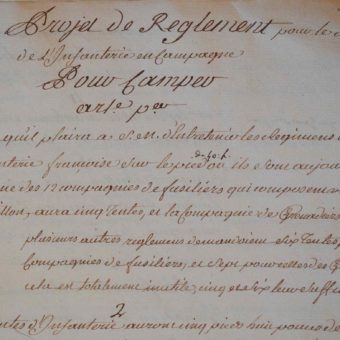 Projet de Reglement pour le
de L'Infanterie en Campagne
Pour Camper
art.e p.er
qu'il plaira a S. M. d'Entretenir les Regimens
terie françoise sur le pied où ils sont aujou
ne des 12 compagnies de fusiliers qui composent
illon, aura cinq Tentes, et la Compagnie de Grenadiers
plusieurs autres reglemens demandoient six Tentes
Compagnies de fusiliers, et sept pour celles des G
cela est totalement inutile, cinq et six leur suff
2
entes d'Infanterie auront cinq pieds huit pouces de